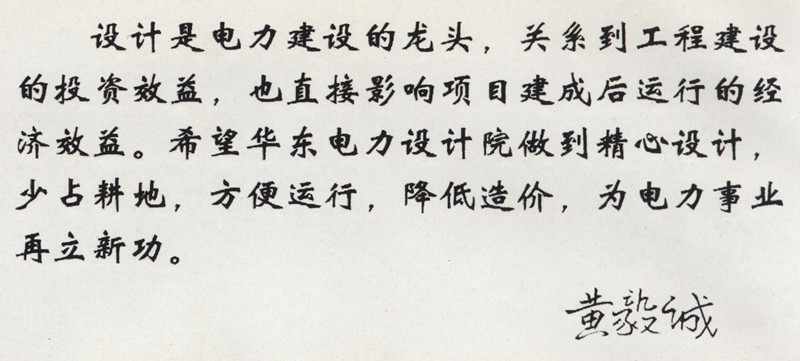 设计是电力建设的龙头，关系到工程建设
的投资效益，也直接影响项目建成后运行的经
济效益。希望华东电力设计院做到精心设计，
少占耕地，方便运行，降低造价，为电力事业
再立新功。
黄毅诚